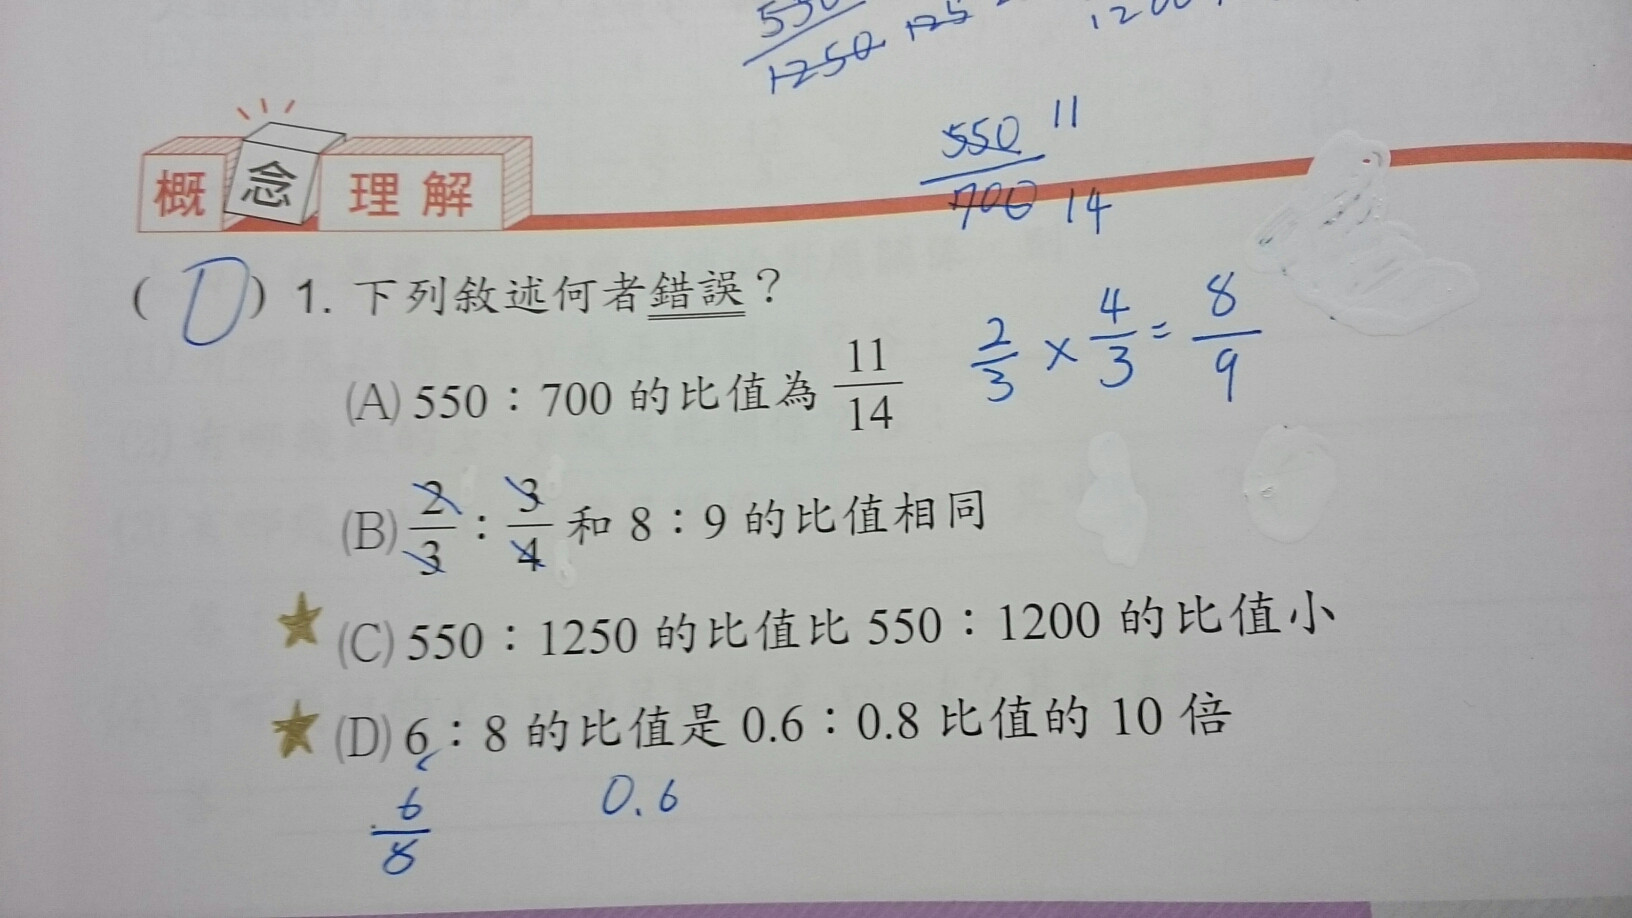 1250 125
550 11
700 14
概念理解
( D ) 1. 下列敘述何者錯誤？
(A) 550：700 的比值為 11/14
2/3 × 4/3 = 8/9
(B) 2/3：3/4 和 8：9 的比值相同
(C) 550：1250 的比值比 550：1200 的比值小
(D) 6：8 的比值是 0.6：0.8 比值的 10 倍
6/8 0.6